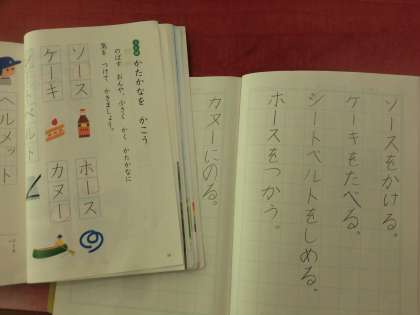 かたかなを かこう
のばす おんや、小さく かく かたかなに
気を つけて かきましょう。
ソース
ケーキ
ホース
カヌー
シートベルト
ヘルメット
ソースをかける。
ケーキをたべる。
シートベルトをしめる。
ホースをつかう。
カヌーにのる。